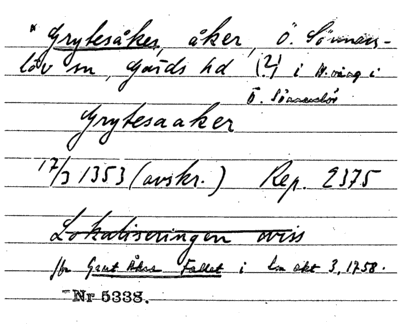 * Grytesåker, åker, Ö. Sönnars-
löv sn, Gärds hd (?) i N. väng i
Ö. Sönnarslöv
Grytesaaker
17/3 1353 (avskr.) Rep. 2375
Lokaliseringen viss
jfr Gryt Åkra Fallet i lm akt 3, 1758.
Nr 5338.